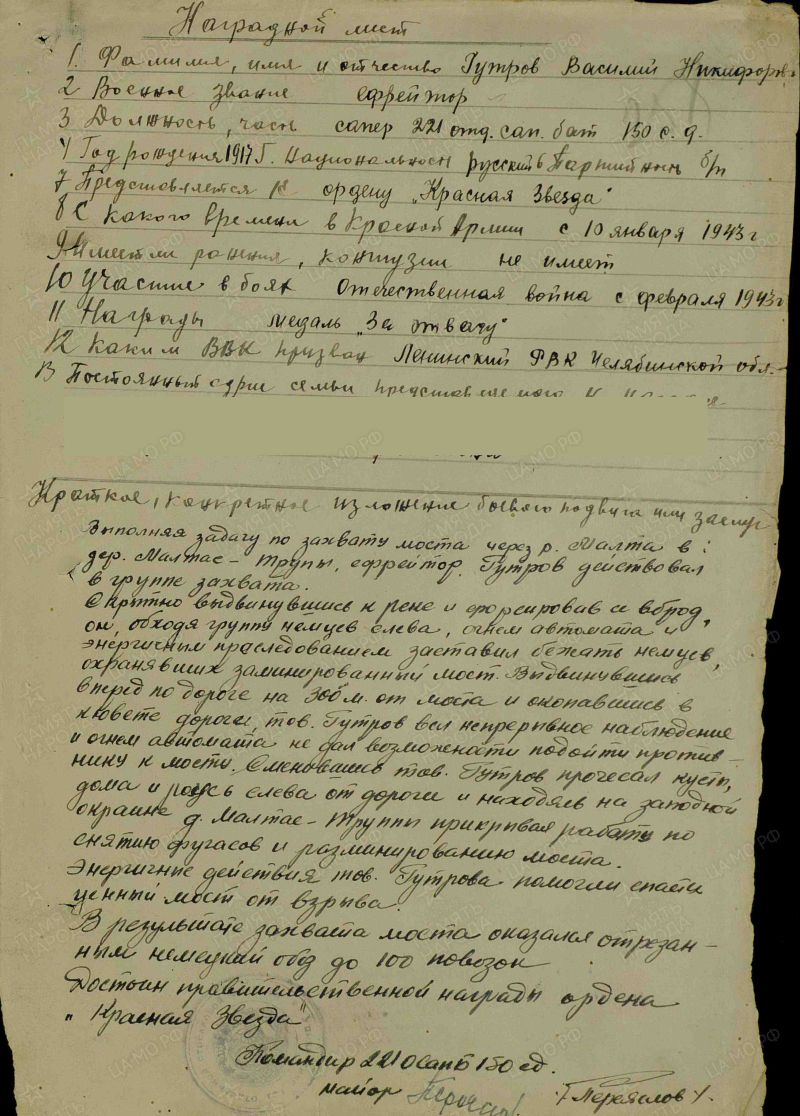 Наградной лист
1. Фамилия, имя и отчество Гутров Василий Никифоров.
2 Военное звание ефрейтор
3 Должность, часть сапер 221 отд. сап. бат 150 с. д.
4 Год рождения 1917 г. Национальность русский 6 Партийность б/п
7 Представляется к ордену „Красная Звезда"
8 С какого времени в Красной Армии с 10 января 1943 г
9 Имеет ли ранения, контузии не имеет
10 Участие в боях отечественная война с февраля 1943 г
11 Награды медаль „За отвагу"
12 Каким РВК призван Ленинский РВК Челябинской обл.
13 Постоянный адрес семьи представляемого к
Краткое, конкретное изложение боевого подвига или заслуг
Выполняя задачу по захвату моста через р. Малта в
дер. Малтас – Трупы, ефрейтор Гутров действовал
в группе захвата.
Скрытно выдвинувшись к реке и форсировав её вброд,
он, обходя группу немцев слева, огнем автомата и
энергичным преследованием заставил бежать немцев,
охранявших заминированный мост. Выдвинувшись
вперед по дороге на 300 м. от моста и окопавшись в
кювете дороги, тов. Гутров вел непрерывное наблюдение
и огнем автомата не дал возможности подойти против-
нику к мосту. Сменовшись тов. Гутров прочесал кусты,
дома и слева от дороги и находясь на западной
окраине д. Малтас – Труппы прикрывая работу по
снятию фугасов и разминированию моста.
Энергичные действия тов. Гутрова помогли спасти
ценный мост от взрыва.
В результате захвата моста оказался отрезан-
ным немецкий обоз до 100 повозок
Достоин правительственной награды ордена
„Красная Звезда"
Командир 221 осапб 150 сд.
майор
/Переяслов/.